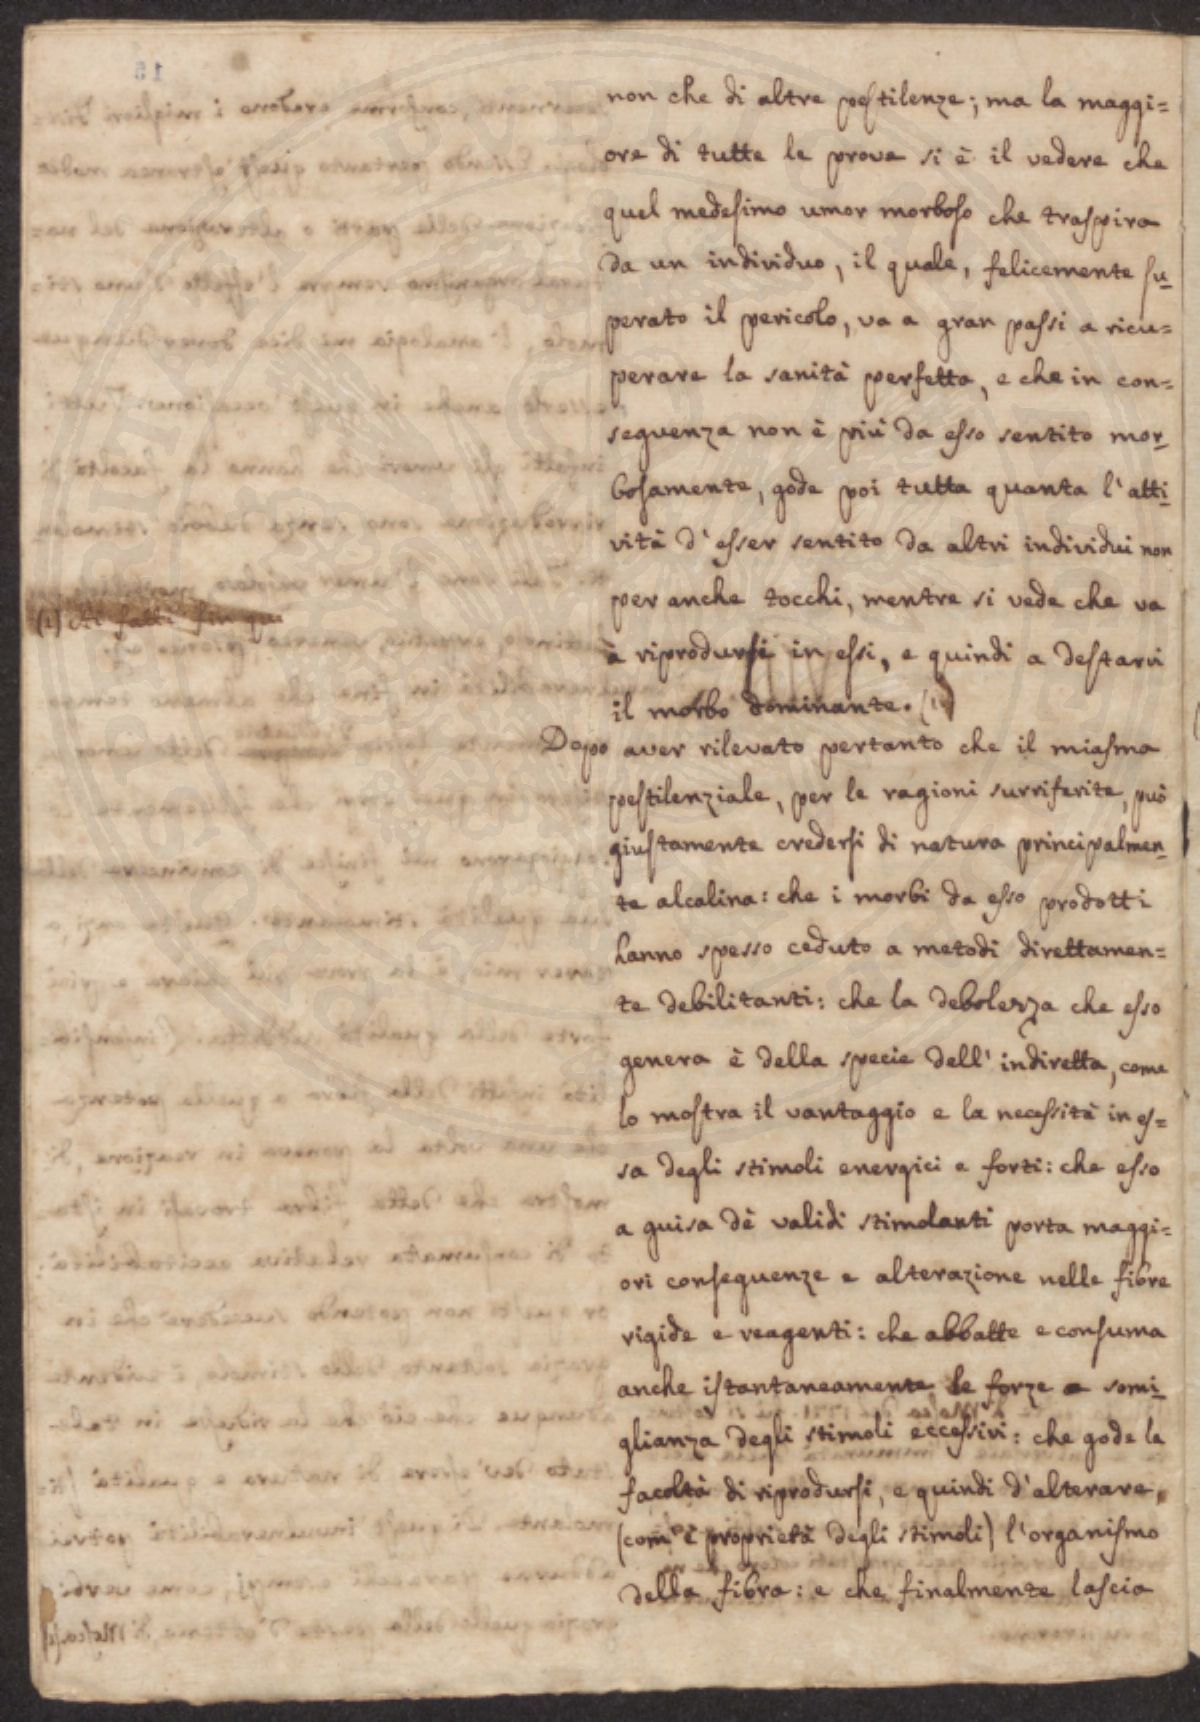 non che di altre pestilenze; ma la maggi=
ore di tutte le prove si è il vedere che
quel medesimo umor morboso che traspira
da un individuo, il quale, felicemente su-
perato il pericolo, va a gran passi a ricu=
perare la sanità perfetta, e che in con=
seguenza non è più da esso sentito mor-
bosamente, gode poi tutta quanta l'atti-
vità d'esser sentito da altri individui non
per anche tocchi, mentre si vede che va
(1) Ai fatti fin qu
à riprodursi in essi, e quindi a destarvi
il morbo dominante. (1)
Dopo aver rilevato pertanto che il miasma
pestilenziale, per le ragioni surriferite, può
giustamente credersi di natura principalmen-
te alcalina: che i morbi da esso prodotti
hanno spesso ceduto a metodi direttamen=
te debilitanti: che la debolezza che esso
genera è della specie dell'indiretta, come
lo mostra il vantaggio e la necessità in es=
sa degli stimoli energici e forti: che esso
a guisa dè validi stimolanti porta maggi=
ori conseguenze e alterazione nelle fibre
rigide e reagenti: che abbatte e consuma
anche istantaneamente le forze a somi-
glianza degli stimoli eccessivi: che gode la
facoltà di riprodursi, e quindi d'alterare,
(com'è proprietà degli stimoli) l'organismo
della fibra: e che finalmente lascia